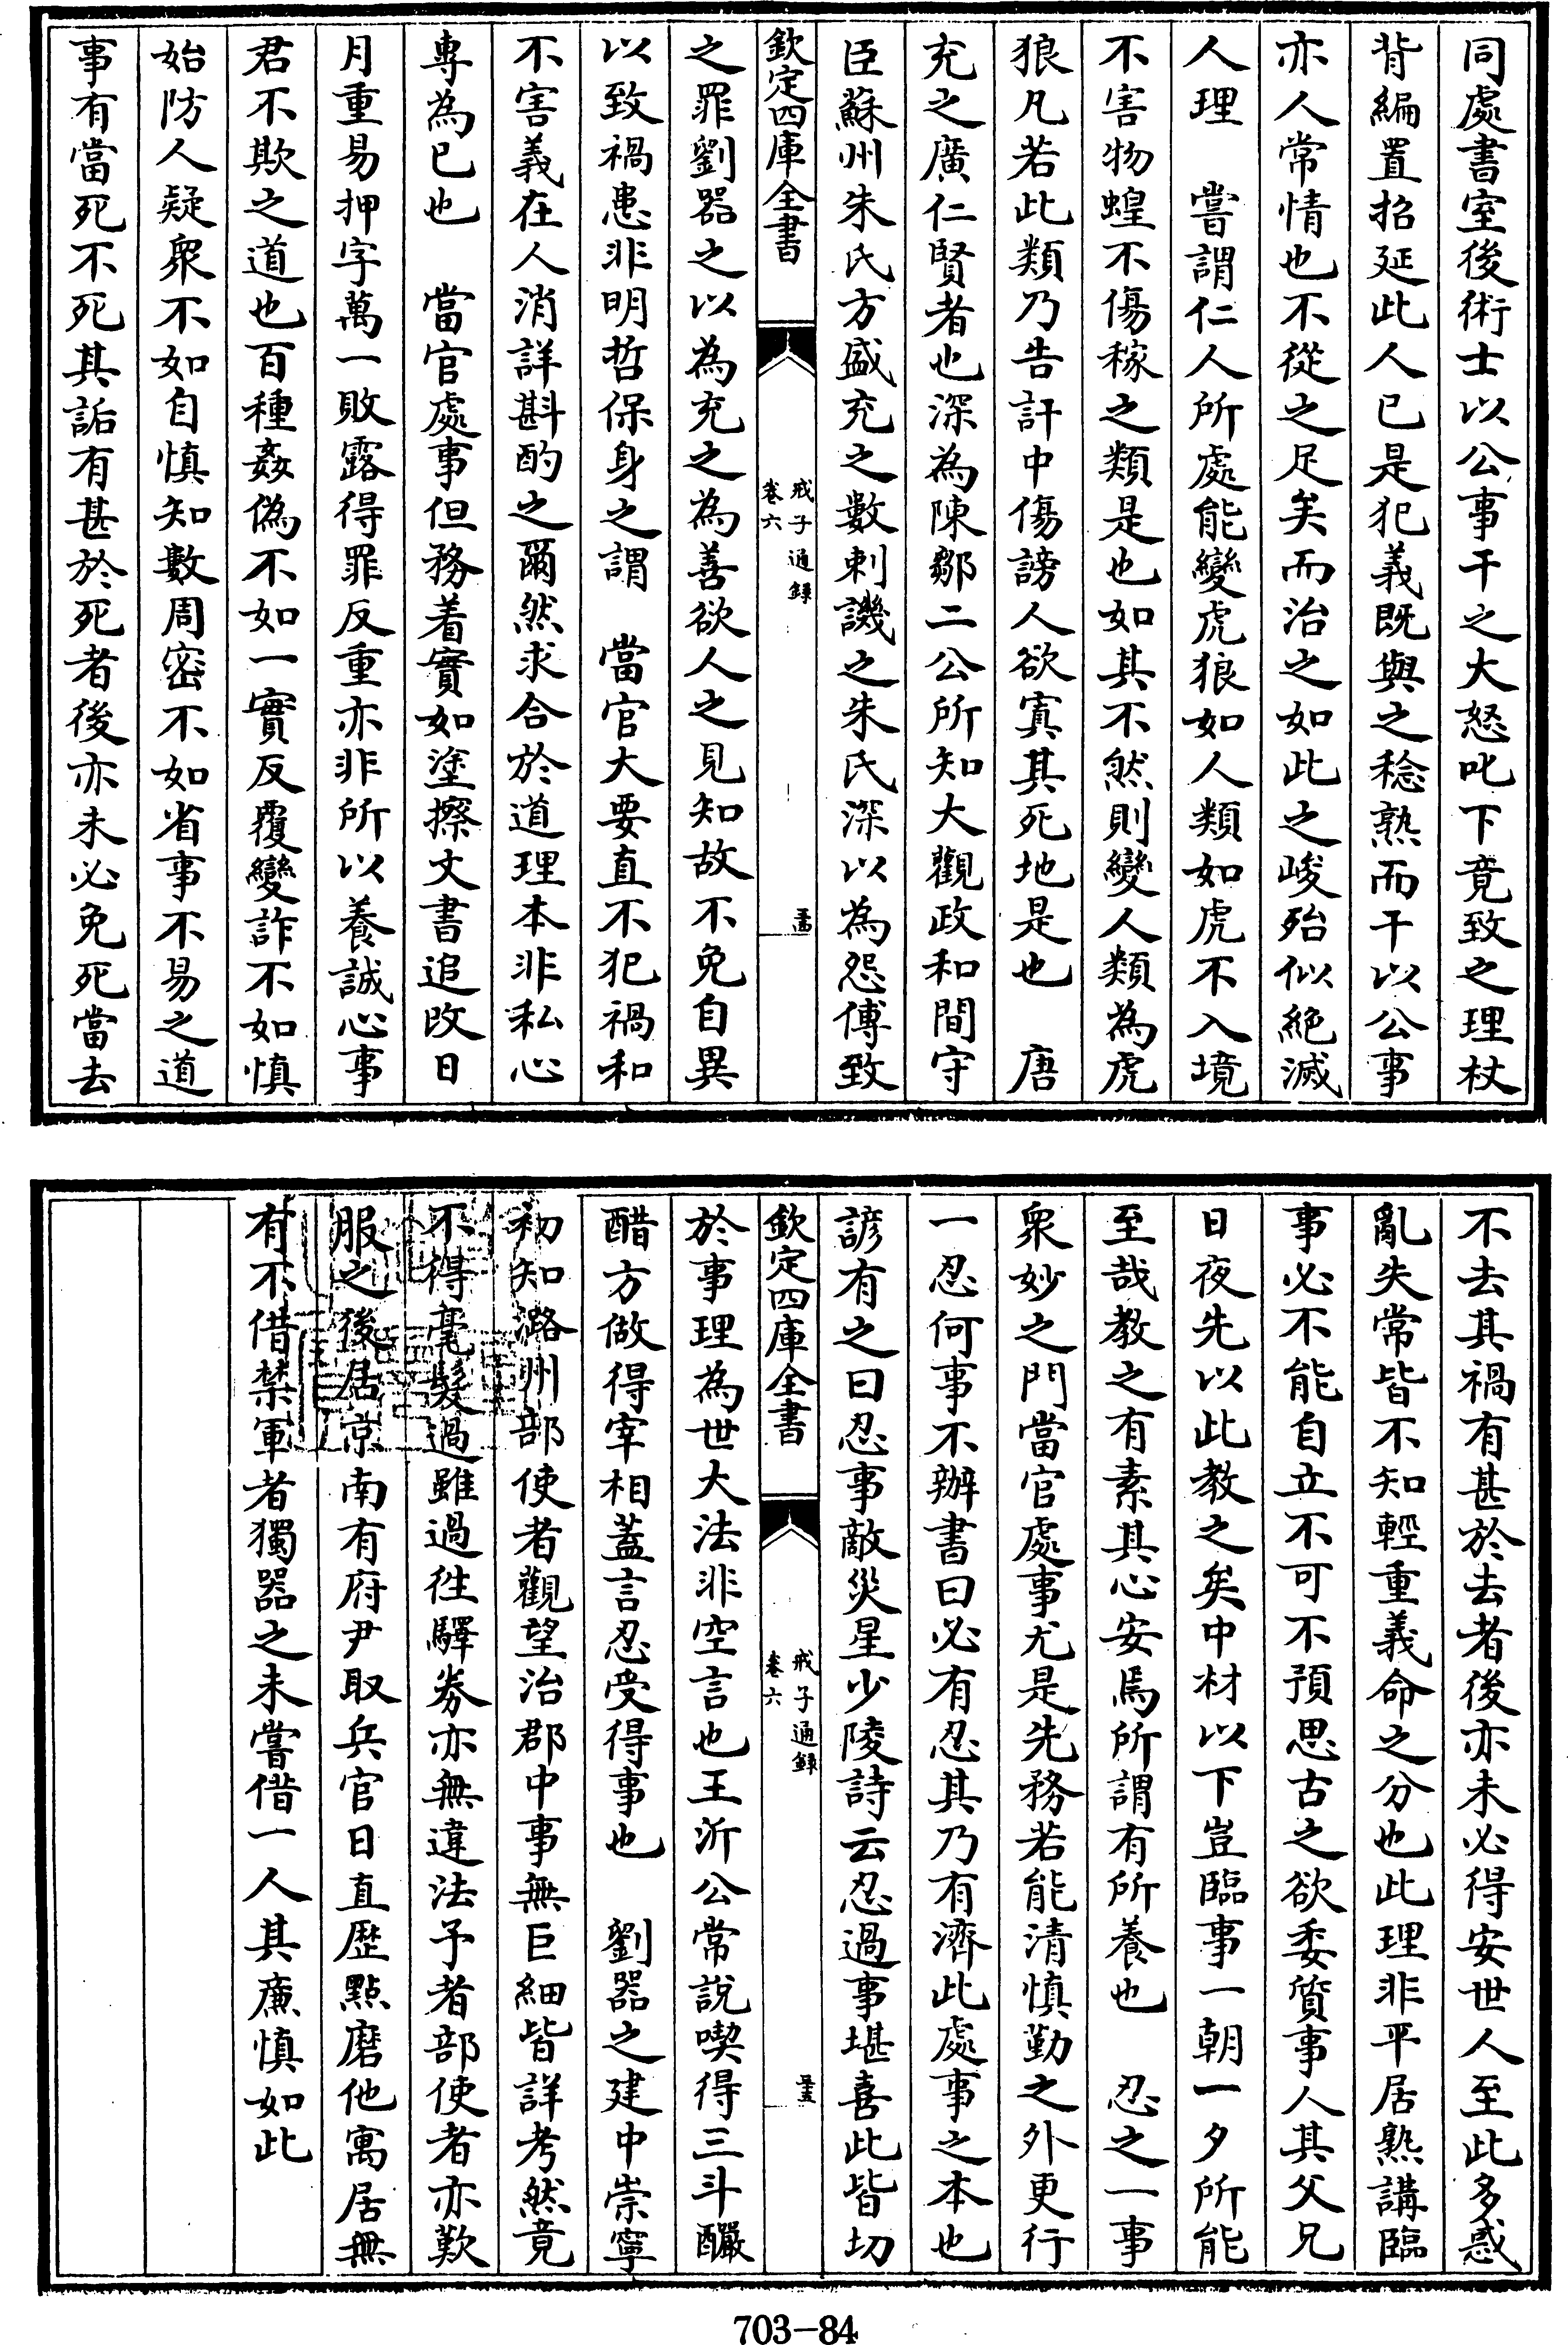 同處書室後術士以公事干之大怒叱下竟致之理杖
背編置招延此人已是犯義既與之稔熟而干以公事
亦人常情也不從之足矣而治之如此之峻殆似絶滅
人理　嘗謂仁人所處能變虎狼如人類如虎不入境
不害物蝗不傷稼之類是也如其不然則變人類為虎
狼凡若此類乃告訐中傷謗人欲寘其死地是也　唐
充之廣仁賢者也深為陳鄒二公所知大觀政和間守
臣蘇州朱氏方盛充之數刺譏之朱氏深以為怨傅致
欽定四庫全書
戒子通錄
卷六
之罪劉器之以為充之為善欲人之見知故不免自異
以致禍患非明哲保身之謂　當官大要直不犯禍和
不害義在人消詳斟酌之爾然求合於道理本非私心
專為已也　當官處事但務着實如塗擦文書追改日
月重易押字萬一敗露得罪反重亦非所以養誠心事
君不欺之道也百種姦偽不如一實反覆變詐不如慎
始防人疑衆不如自慎知數周密不如省事不易之道
事有當死不死其詬有甚於死者後亦未必免死當去
不去其禍有甚於去者後亦未必得安世人至此多惑
亂失常皆不知輕重義命之分也此理非平居熟講臨
事必不能自立不可不預思古之欲委質事人其父兄
日夜先以此教之矣中材以下豈臨事一朝一夕所能
至哉教之有素其心安焉所謂有所養也　忍之一事
衆妙之門當官處事尤是先務若能清慎勤之外更行
一忍何事不辦書曰必有忍其乃有濟此處事之本也
諺有之曰忍事敵災星少陵詩云忍過事堪喜此皆切
欽定四庫全書
戒子通錄
卷六
於事理為世大法非空言也王沂公常說喫得三斗釅
醋方做得宰相蓋言忍受得事也　劉器之建中崇寧
初知潞州部使者觀望治郡中事無巨細皆詳考然竟
不得毫髮過雖過往驛券亦無違法予者部使者亦歎
服之後居京南有府尹取兵官日直歷點磨他寓居無
有不借禁軍者獨器之未嘗借一人其廉慎如此
703-84